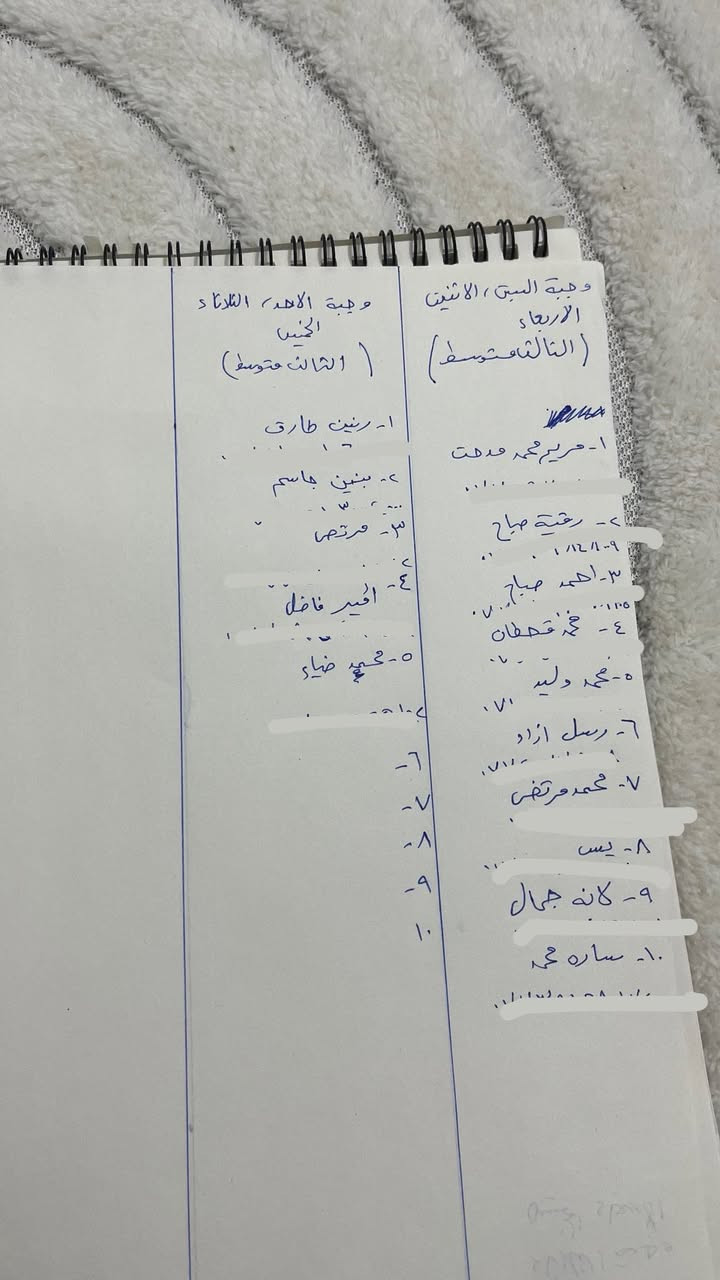 وجبة السبت، الاثنين
الأربعاء
(الثالث متوسط)
١- مريم محمد مدحت
٢- رقية صباح
٣- احمد صباح
٤- محمد قحطان
٥- محمد وليد
٦- رسل ازاد
٧- محمد مرتضى
٨- يس
٩- لانه جمال
١٠- ساره محمد
وجبة الاحد، الثلاثاء
الخميس
(الثالث متوسط)
١- رنين طارق
٢- بنين جاسم
٣- مرتضى
٤- فاضل
٥- محمد ضياء
٦-
٧-
٨-
٩-
١٠